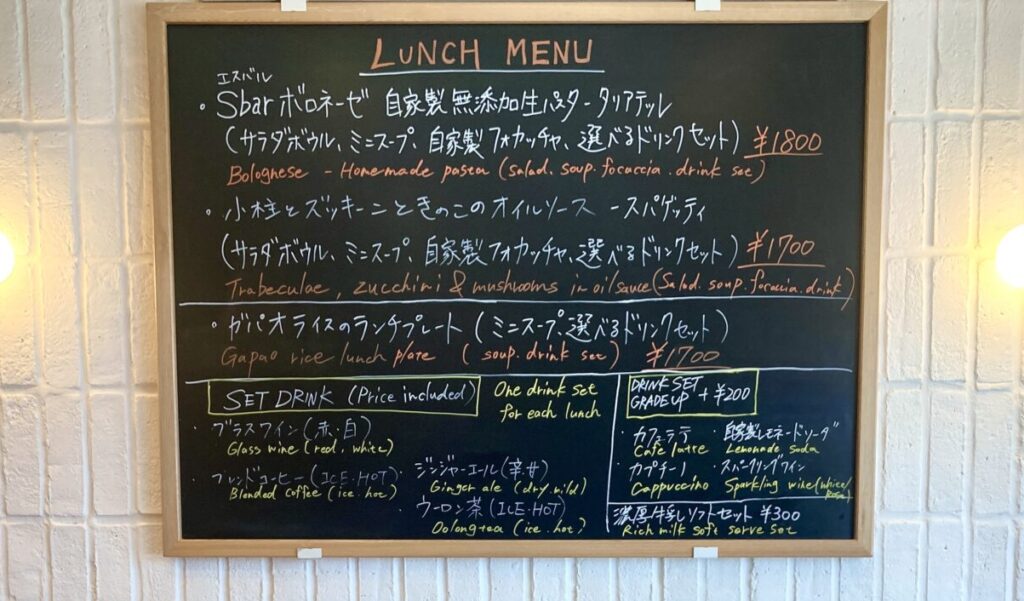 LUNCH MENU
エスバル
・Sbar ボロネーゼ 自家製無添加生パスタ - タリアテッレ
(サラダボウル、ミニスープ、自家製フォカッチャ、選べるドリンクセット) ¥1800
Bolognese - Homemade pasta (salad. soup. focaccia. drink set)
・小柱とズッキーニときのこのオイルソース - スパゲッティ
(サラダボウル、ミニスープ、自家製フォカッチャ、選べるドリンクセット) ¥1700
Trabeculae, zucchini & mushrooms in oil sauce (Salad. soup. focaccia. drink)
・ガパオライスのランチプレート (ミニスープ、選べるドリンクセット)
Gapao rice lunch plate (soup. drink set) ¥1700
SET DRINK (Price included)
One drink set
for each lunch
・グラスワイン (赤, 白)
Glass wine (red, white)
・ブレンドコーヒー (ICE・HOT)
Blended coffee (ice. hot)
・ジンジャーエール (辛・甘)
Ginger ale (dry. mild)
・ウーロン茶 (ICE・HOT)
Oolong tea (ice. hot)
DRINK SET
GRADE UP + ¥200
・カフェラテ
Cafe latte
・カプチーノ
Cappuccino
・自家製レモネードソーダ
Lemonade soda
・スパークリングワイン
Sparkling wine (white/
rose)
濃厚牛乳ソフトセット ¥300
Rich milk soft serve set